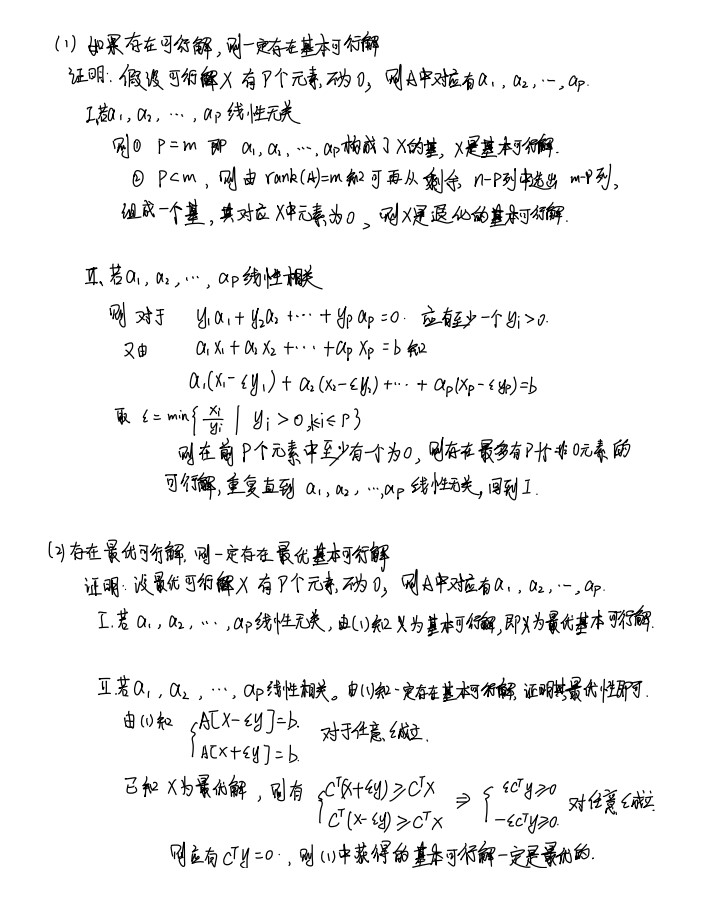 (1) 如果存在可行解,则一定存在基本可行解
证明:假设可行解X有P个元素不为0,则A中对应有a₁, a₂, ⋯, aₚ.
I.若a₁, a₂, ⋯, aₚ线性无关
则① P=m 即 a₁, a₂, ⋯, aₚ构成了X的基,X是基本可行解.
② P<m,则由rank(A)=m知可再从剩余 n-P列中选出 m-P列,
组成一个基,其对应X中元素为0,则X是退化的基本可行解.
II、若a₁, a₂, ⋯, aₚ线性相关
则对于 y₁a₁+y₂a₂+⋯+yₚaₚ=0. 应有至少一个yᵢ>0.
又由 a₁x₁+a₂x₂+⋯+aₚxₚ=b 知
a₁(x₁-εy₁)+a₂(x₂-εy₂)+⋯+aₚ(xₚ-εyₚ)=b
取 ε=min{xᵢ/yᵢ | yᵢ>0,1≤i≤P}
则在前P个元素中至少有一个为0,则存在最多有P-1个非0元素的
可行解,重复直到 a₁, a₂, ⋯,aₚ 线性无关,回到I.
(2)存在最优可行解,则一定存在最优基本可行解
证明:设最优可行解X有P个元素不为0,则A中对应有a₁, a₂, ⋯, aₚ.
I.若 a₁, a₂, ⋯, aₚ线性无关,由(1)知X为基本可行解,即X为最优基本可行解.
II.若a₁, a₂, ⋯, aₚ线性相关。由(1)知一定存在基本可行解,证明其最优性即可.
由(1)知 { A[X-εy]=b. 对于任意ε成立.
A[X+εy]=b.
已知X为最优解,则有 { Cᵀ(X+εy)≥CᵀX ⇒ { εCᵀy≥0 对任意ε成立
Cᵀ(X-εy)≥CᵀX -εCᵀy≥0.
则应有Cᵀy=0.,则(1)中获得的基本可行解一定是最优的.